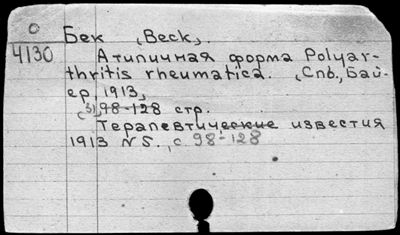 О
Бек (Beck)
4130
Атипичная форма Polyar-
thritis rheumatica. (Спб, Бай-
ер, 1913,
(3), 98-128 стр.
Терапевтические известия
1913 N 5., с. 98-128